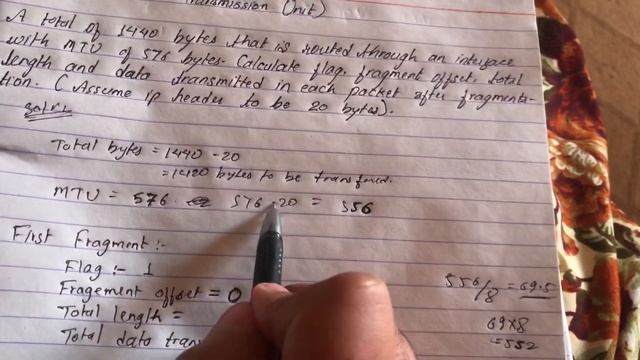 Transmission Unit)
A total of 1440 bytes that is routed through an interface
with MTU of 576 bytes. Calculate flag, fragment offset, total
length and data transmitted in each packet after fragmenta-
tion. (Assume ip header to be 20 bytes).
Soln:
Total bytes = 1440 - 20
= 1420 bytes to be transfered.
MTU = 576. 576 - 20 = 556
First Fragment :-
Flag :- 1
Fragement offset = 0
Total length =
Total data tran
556/8 = 69.5
69x8
= 552